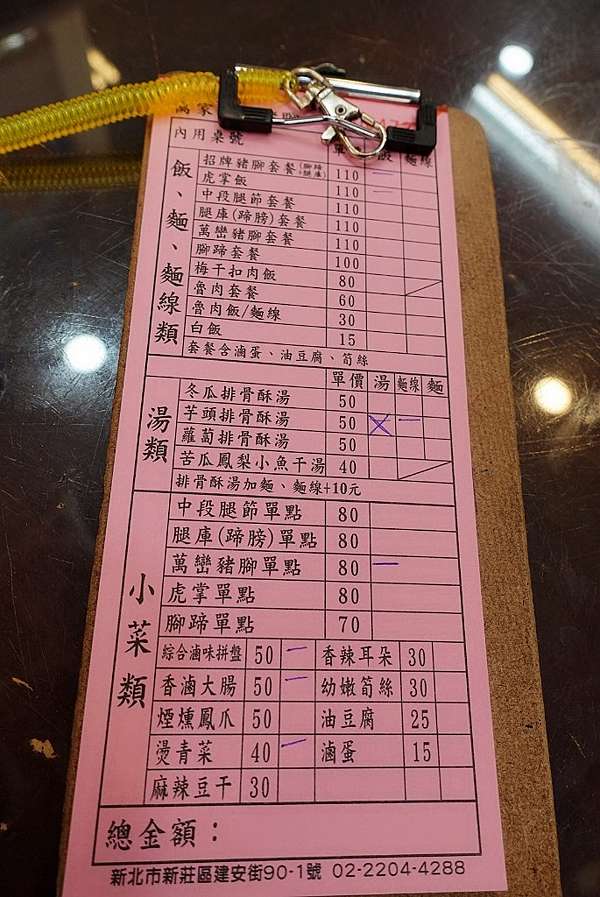 萬家
內用桌號 單 飯 麵線
飯、麵、麵線類
招牌豬腳套餐(腳蹄+腿庫) 110
虎掌飯 110
中段腿節套餐 110
腿庫(蹄膀)套餐 110
萬巒豬腳套餐 110
腳蹄套餐 100
梅干扣肉飯 80
魯肉套餐 60
魯肉飯/麵線 30
白飯 15
套餐含滷蛋、油豆腐、筍絲
湯類
單價 湯 麵線 麵
冬瓜排骨酥湯 50
芋頭排骨酥湯 50
蘿蔔排骨酥湯 50
苦瓜鳳梨小魚干湯 40
排骨酥湯加麵、麵線+10元
小菜類
中段腿節單點 80
腿庫(蹄膀)單點 80
萬巒豬腳單點 80
虎掌單點 80
腳蹄單點 70
綜合滷味拼盤 50 香辣耳朵 30
香滷大腸 50 幼嫩筍絲 30
煙燻鳳爪 50 油豆腐 25
燙青菜 40 滷蛋 15
麻辣豆干 30
總金額：
新北市新莊區建安街90-1號 02-2204-4288